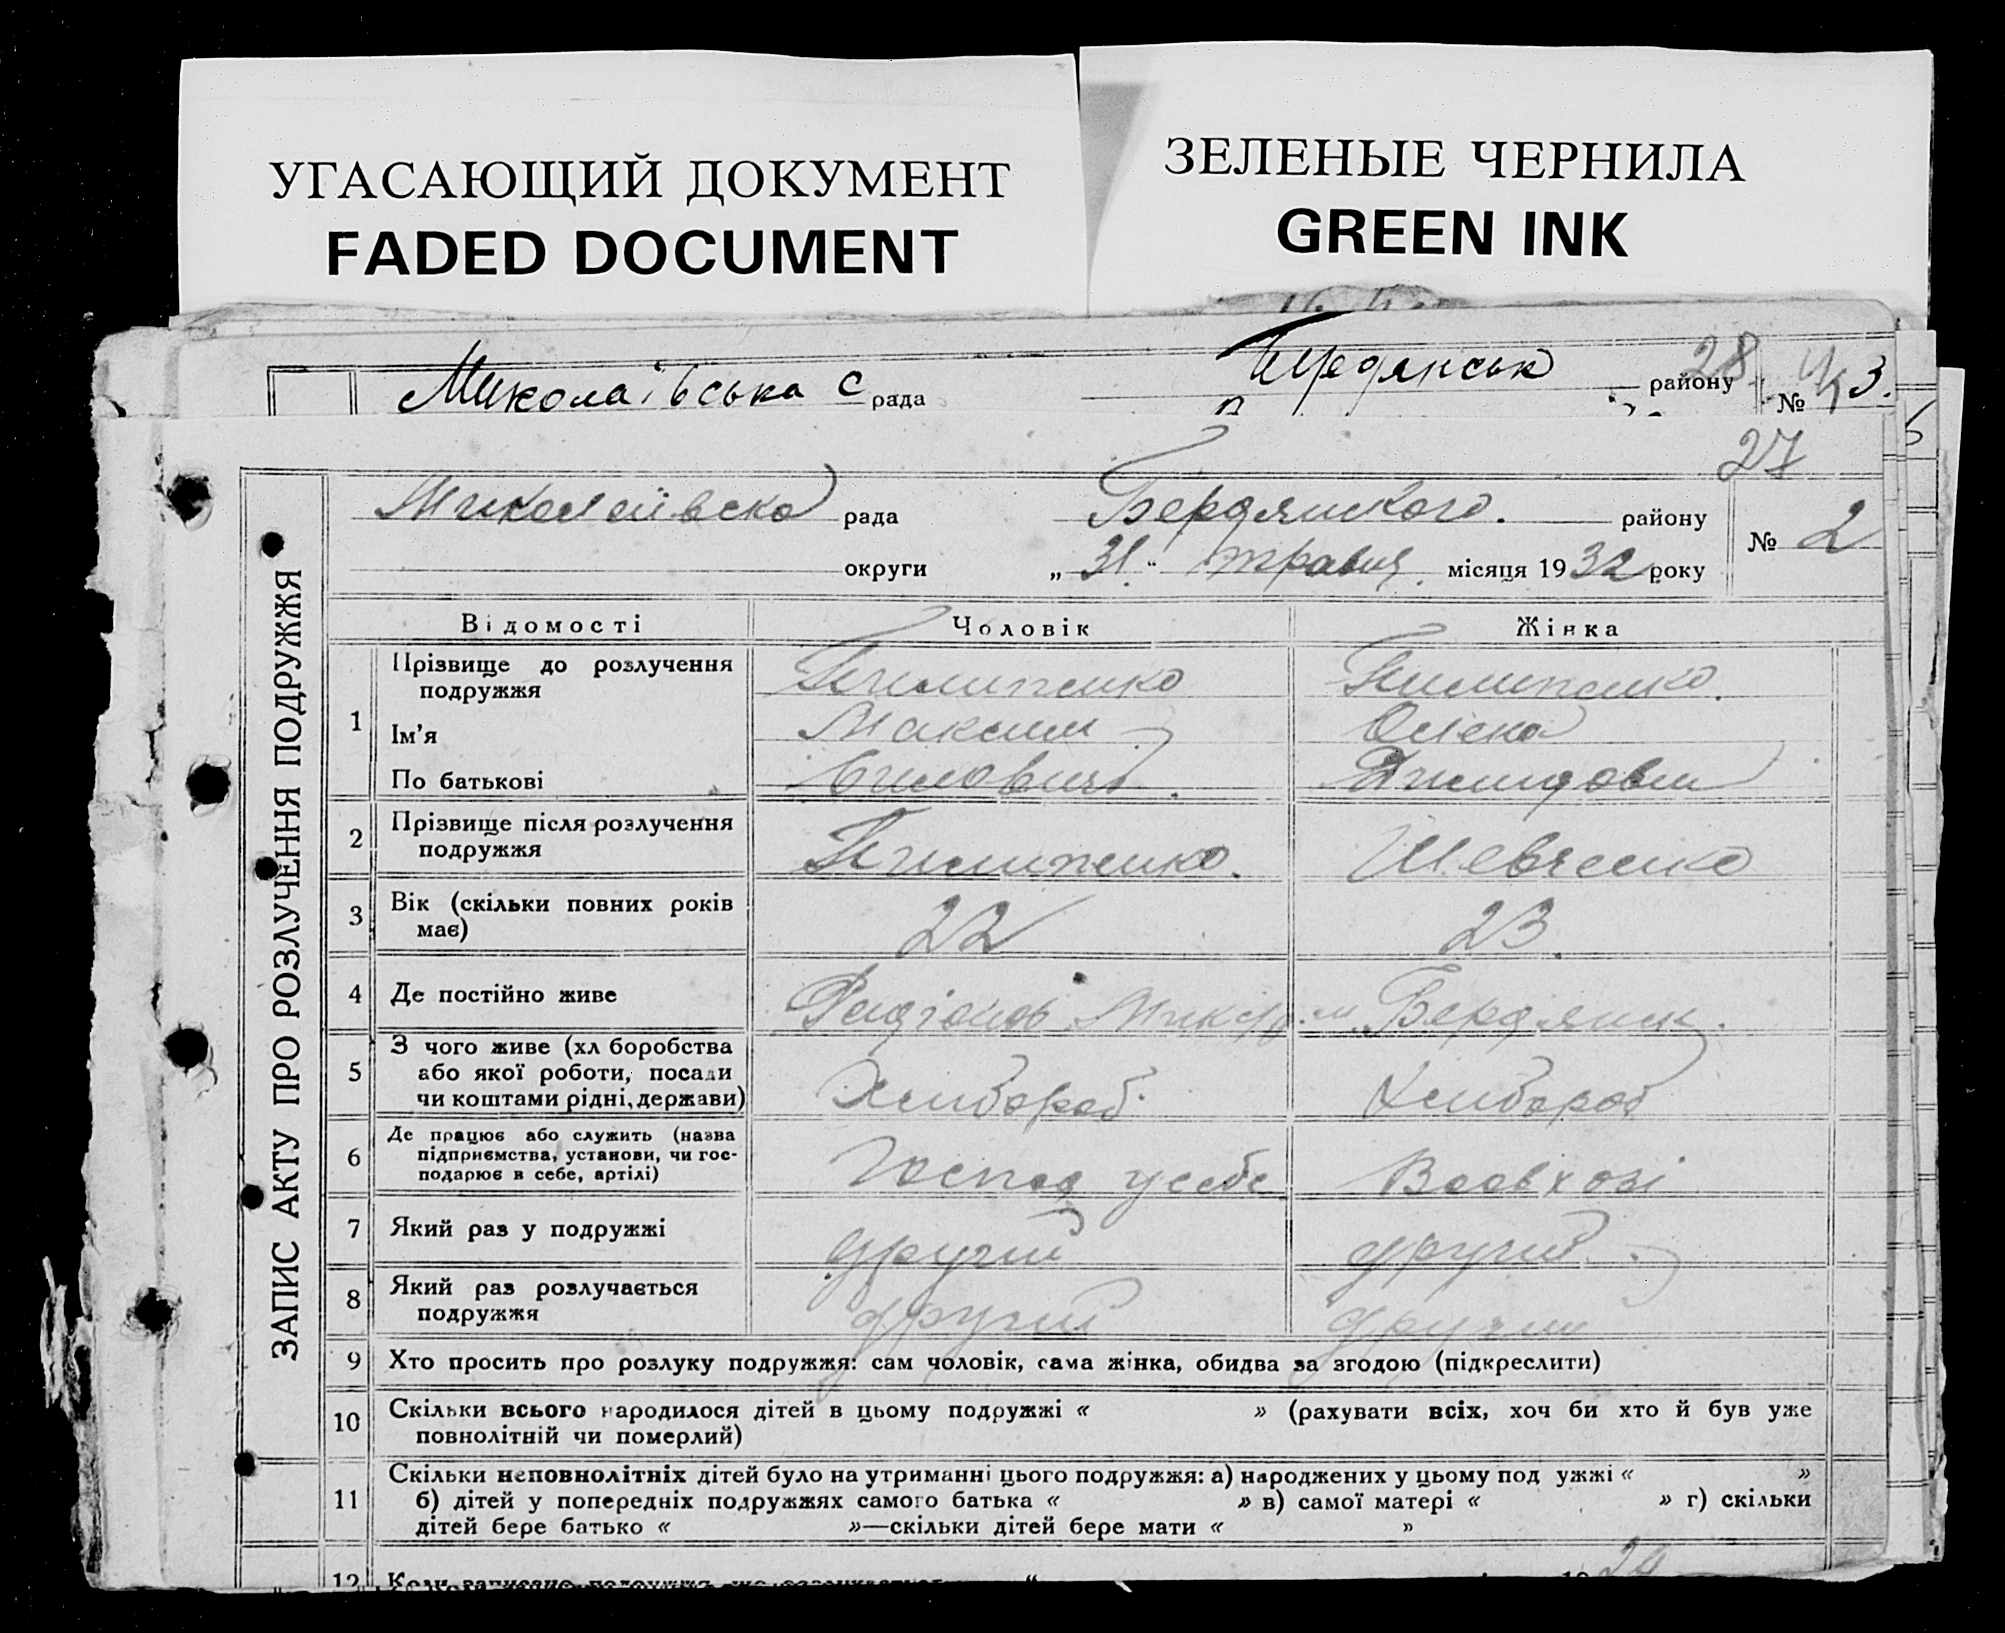 УГАСАЮЩИЙ ДОКУМЕНТ
FADED DOCUMENT
ЗЕЛЕНЫЕ ЧЕРНИЛА
GREEN INK
Миколаівська с рада Бердянськ району 28 № 3.
27
Миколаївска рада Бердянского. району № 2
округи „ 31 “ травня місяця 1932 року
ЗАПИС АКТУ ПРО РОЗЛУЧЕННЯ ПОДРУЖЖЯ
Відомості Чоловік Жінка
1 Прізвище до розлучення подружжя Пилипенко Пилипенко.
Ім'я Максим Олена
По батькові Демидовна
2 Прізвище після розлучення подружжя Пилипенко. Шевченко
3 Вік (скільки повних років має) 22 23
4 Де постійно живе Бердянськ.
5 З чого живе (хлiборобства або якої роботи, посади чи коштами рідні, держави) Хлибороб Хлибороб
6 Де працює або служить (назва підприємства, установи, чи господарює в себе, артілі) Господ у себе В совхозі
7 Який раз у подружжі другий другий
8 Який раз розлучається подружжя другий другий
9 Хто просить про розлуку подружжя: сам чоловік, сама жінка, обидва за згодою (підкреслити)
10 Скільки всього народилося дітей в цьому подружжі « » (рахувати всіх, хоч би хто й був уже
повнолітній чи померлий)
11 Скільки неповнолітніх дітей було на утриманні цього подружжя: а) народжених у цьому подружжі « »
б) дітей у попередніх подружжях самого батька « » в) самої матері « » г) скільки
дітей бере батько « »—скільки дітей бере мати « »
12